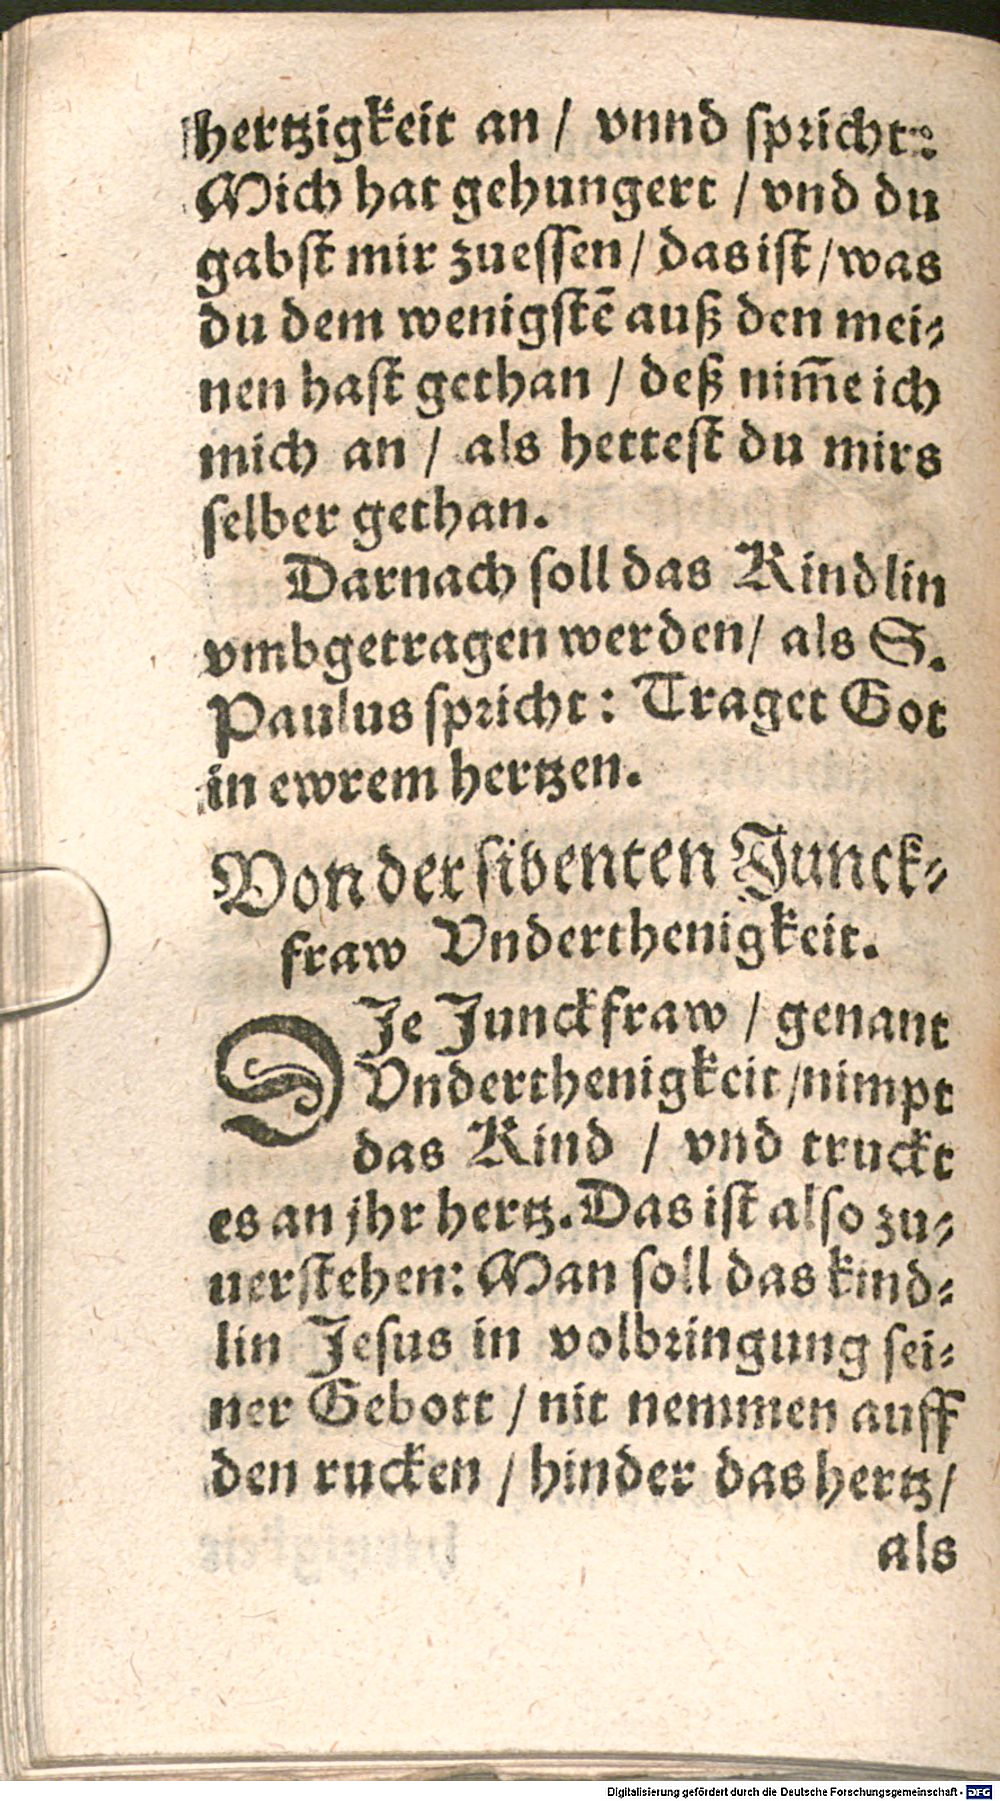 hertzigkeit an / vnnd spricht:
Mich hat gehungert / vnd du
gabst mir zuessen / das ist / was
du dem wenigstē auß den mei⸗
nen hast gethan / deß nim̄e ich
mich an / als hettest du mirs
selber gethan.
Darnach soll das Kindlin
vmbgetragen werden / als S.
Paulus spricht: Traget Got
in ewrem hertzen.
Von der sibenten Junck⸗
fraw Vnderthenigkeit.
DJe Junckfraw / genant
Vnderthenigkeit / nimpt
das Kind / vnd truckt
es an jhr hertz. Das ist also zu⸗
uerstehen: Man soll das kind⸗
lin Jesus in volbringung sei⸗
ner Gebott / nit nemmen auff
den rucken / hinder das hertz /
als
Digitalisierung gefördert durch die Deutsche Forschungsgemeinschaft - DFG